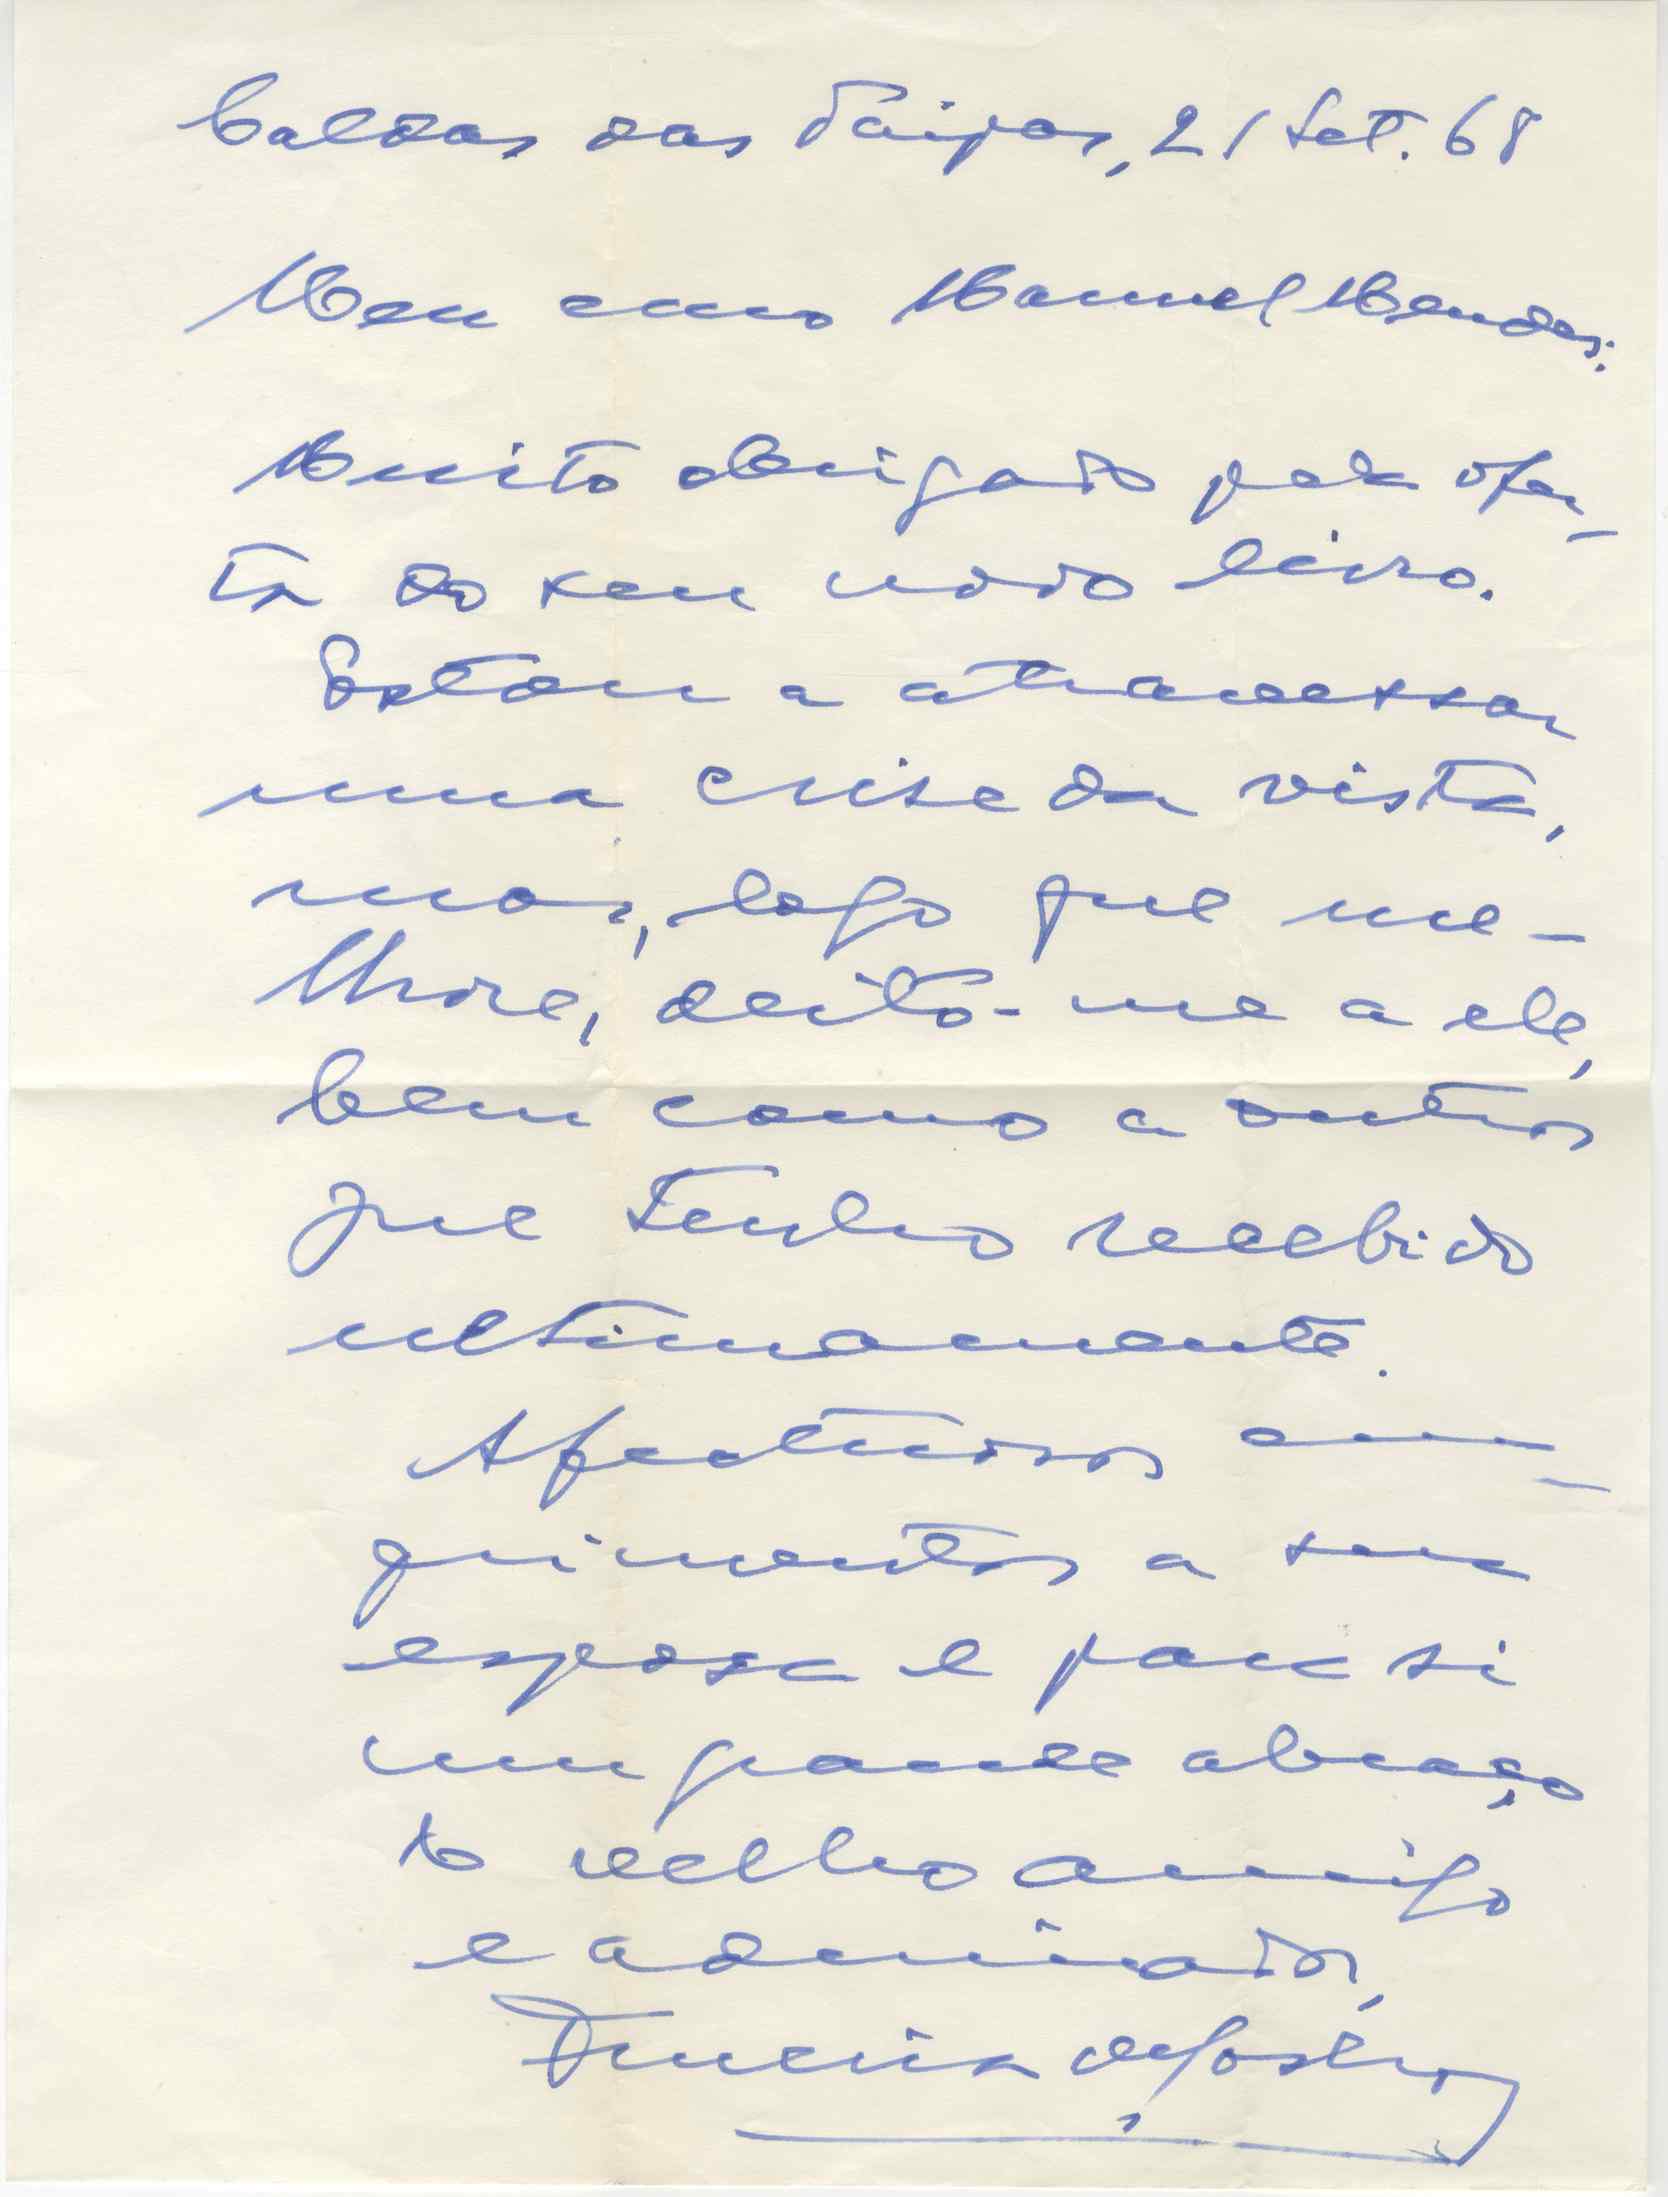 Caldas das Taipas, 21 Set. 68
Meu caro Manuel Mendes:
Muito obrigado pela ofer-
ta do seu novo livro.
Estou a atravessar
uma crise da vista,
mas, logo que me-
lhore, deito-me a ele,
bem como a outros
que tenho recebido
ultimamente.
Afectuosos cum-
primentos a sua
esposa e para si
um grande abraço
do velho amigo
e admirador,
Ferreira de Castro